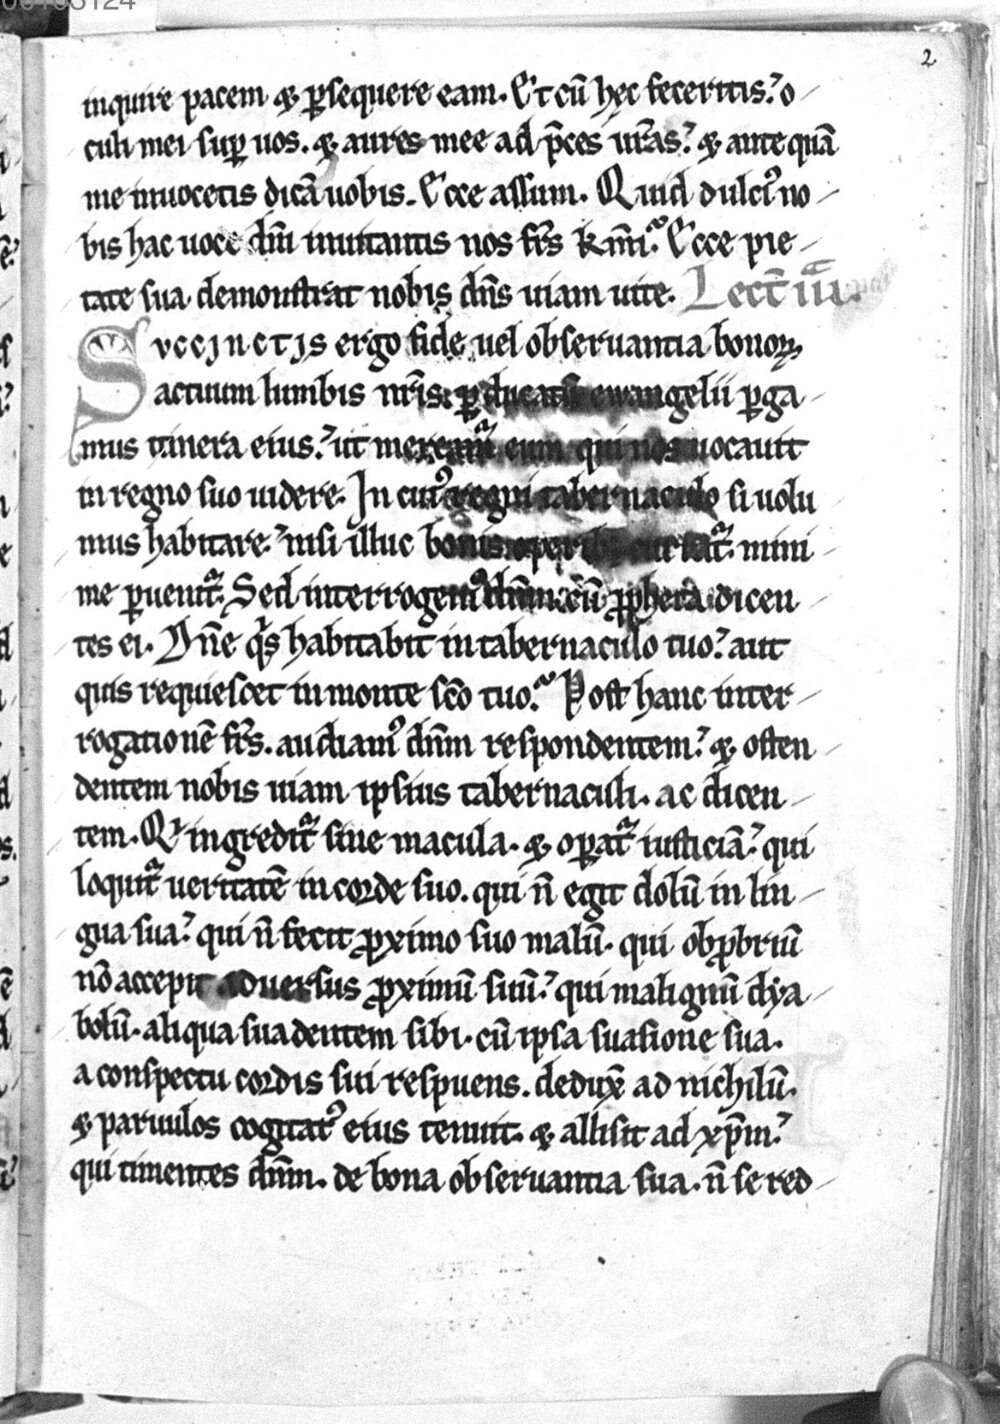 00106124
2
inquire pacem & p̱sequere eam. Et cū hec feceritis.ʼ o
culi mei sup̱ uos. & aures mee ad p̄ces ur̄as.ʼ & ante quā
me inuocetis dicā uobis. Ecce assum. Quid dulciꝰ no
bis hac uoce dn̄i inuitantis nos fr̄s k̄mi.ʼ Ecce pie
tate sua demonstrat nobis dn̄s uiam uite. Lect̄ iii.
Succinctis ergo fide uel obseruantia bonoꝝ
actuum lumbis nr̄is. p̱ ducatū ewangelii p̱ga
mus itinera eius.ʼ ut mereamur eum qui nos uocauit
in regno suo uidere. In cuiꝰ regni tabernaculo si uolu
mus habitare.ʼ nisi illuc bonis operibꝰ currat᷑. mini
me p̱uenit᷑. Sed interrogemꝰ dn̄m cū ꝓpheta dicen
tes ei. Dn̄e qͥs habitabit in tabernaculo tuo.ʼ aut
quis requiescet in monte sc̄o tuo.ʼ Post hanc inter
rogationē fr̄s. audiamꝰ dn̄m respondentem.ʼ & osten
dentem nobis uiam ipsius tabernaculi. ac dicen
tem. Qͥ ingredit᷑ sine macula. & op̱at᷑ iusticiā.ʼ qui
loquit᷑ ueritatē in corde suo. qui n̄ egit dolū in lin
gua sua.ʼ qui n̄ fecit ꝓximo suo malū. qui obꝓbriū
nō accepit aduersus ꝓximū suū.ʼ qui malignū dya
bolū. aliqua suadentem sibi. cū ipsa suasione sua.
a conspectu cordis sui respuens. deduxͭ ad nichilū.
& paruulos cogitatꝰ eius tenuit. & allisit ad xp̄m.ʼ
qui timentes dn̄m. de bona obseruantia sua. n̄ se red